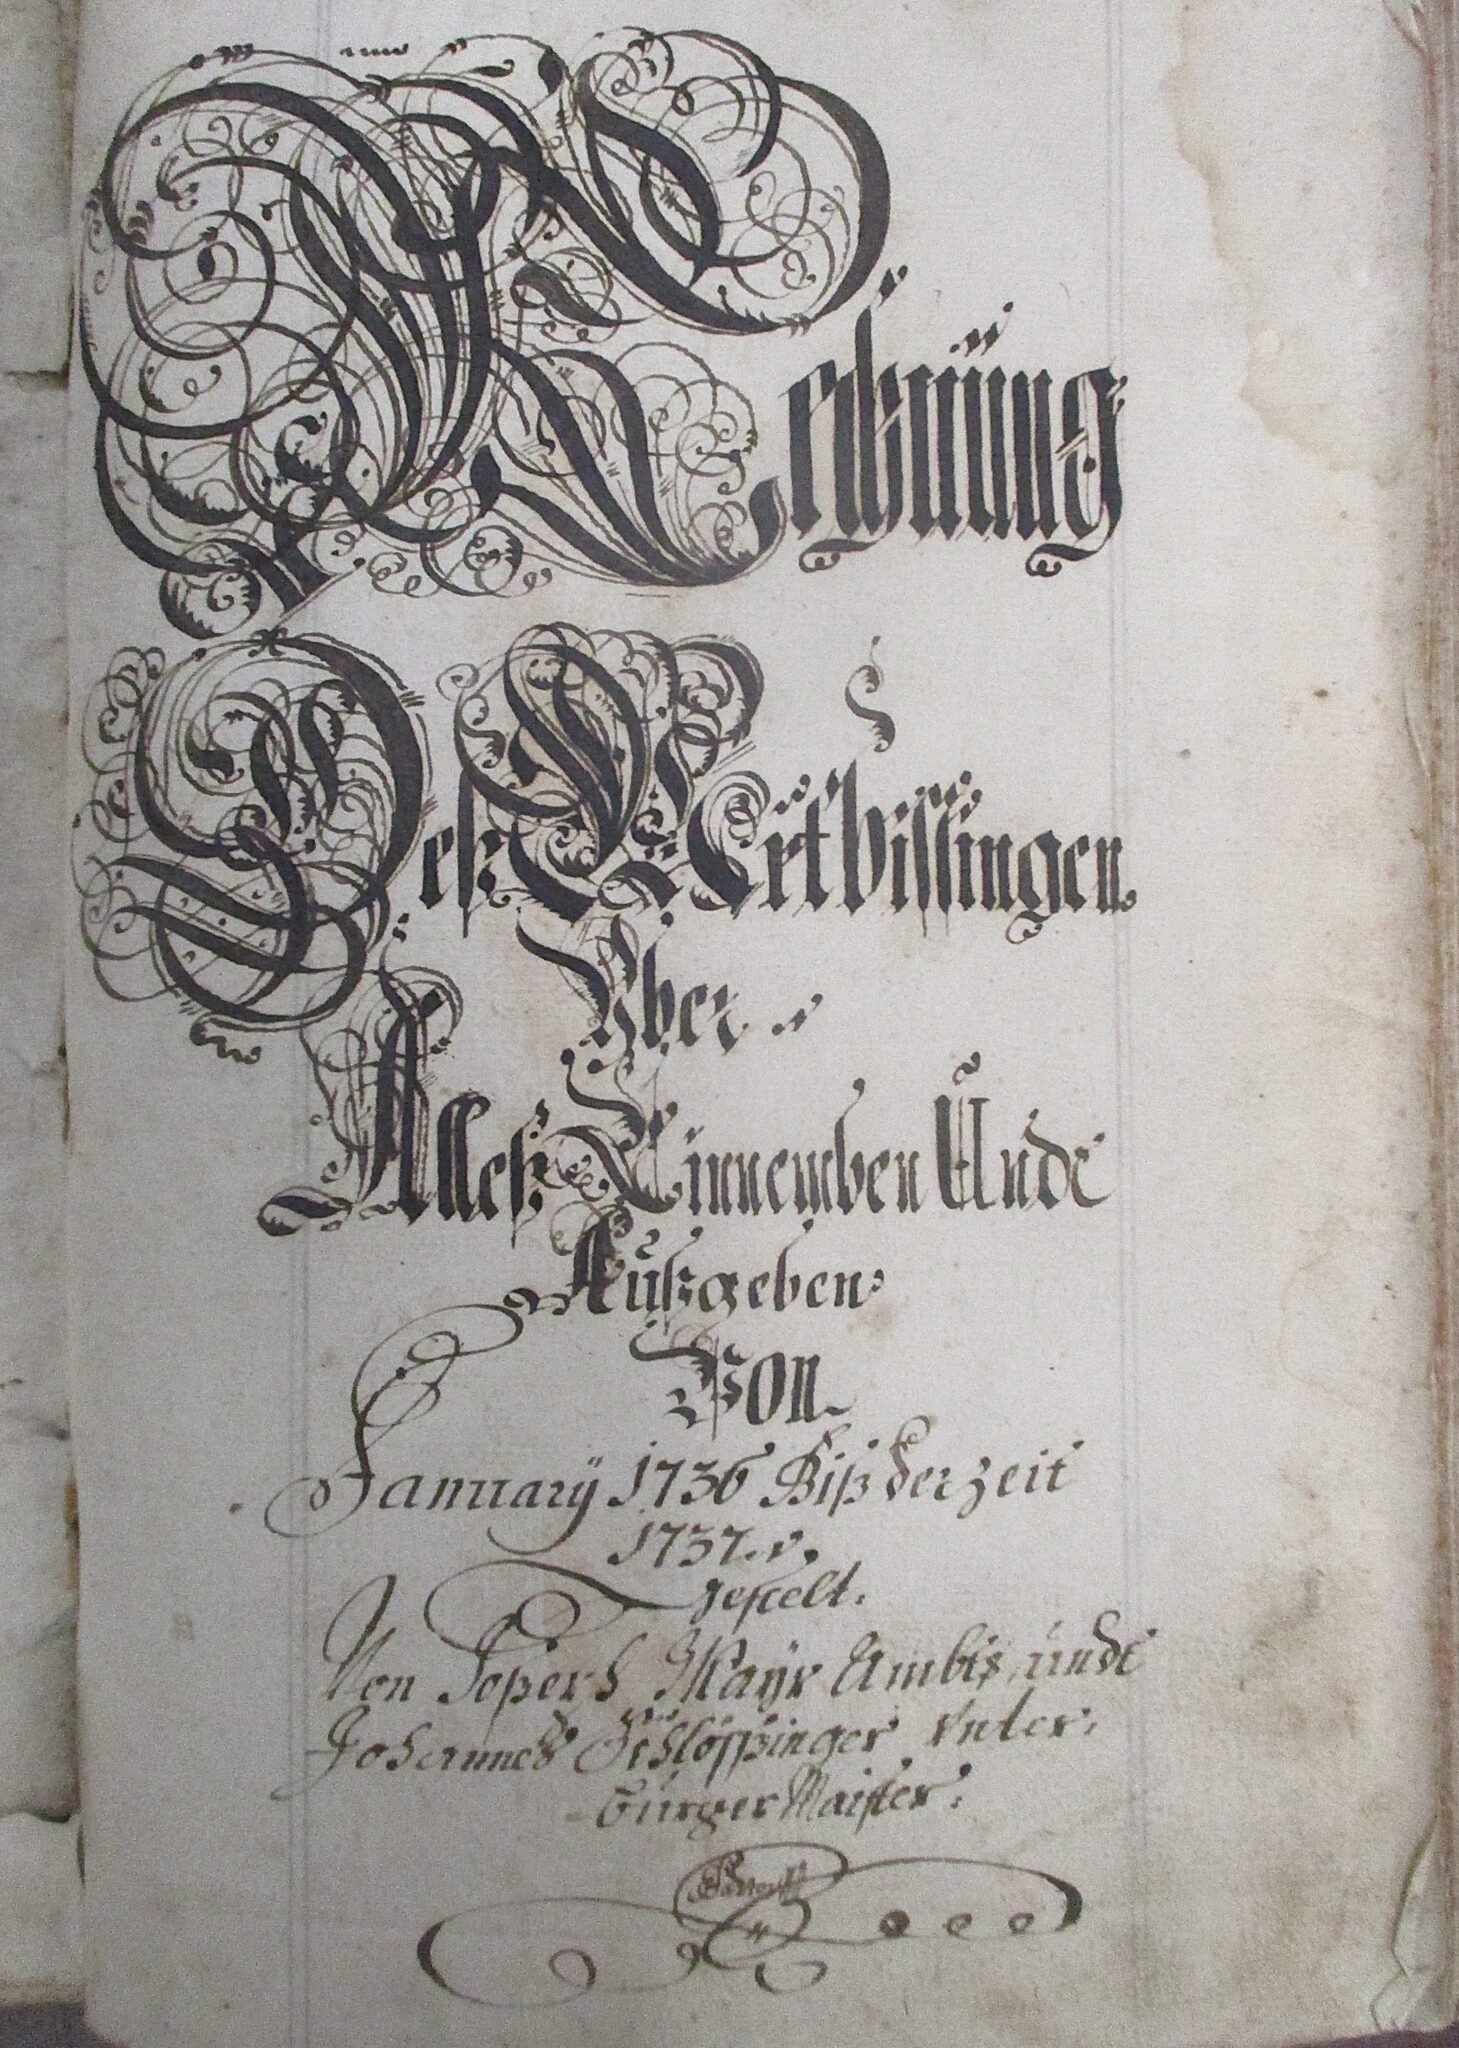 Rechnüng
Deß Mkrthissingen
Yber
Alleß Einnemben Unde
Außgeben
Von
January 1736 Biß der zeit
1737
gestelt.
Von Joseph Mayr Ambts undt
Johannes Schlössinger Unter.
burger Maister.